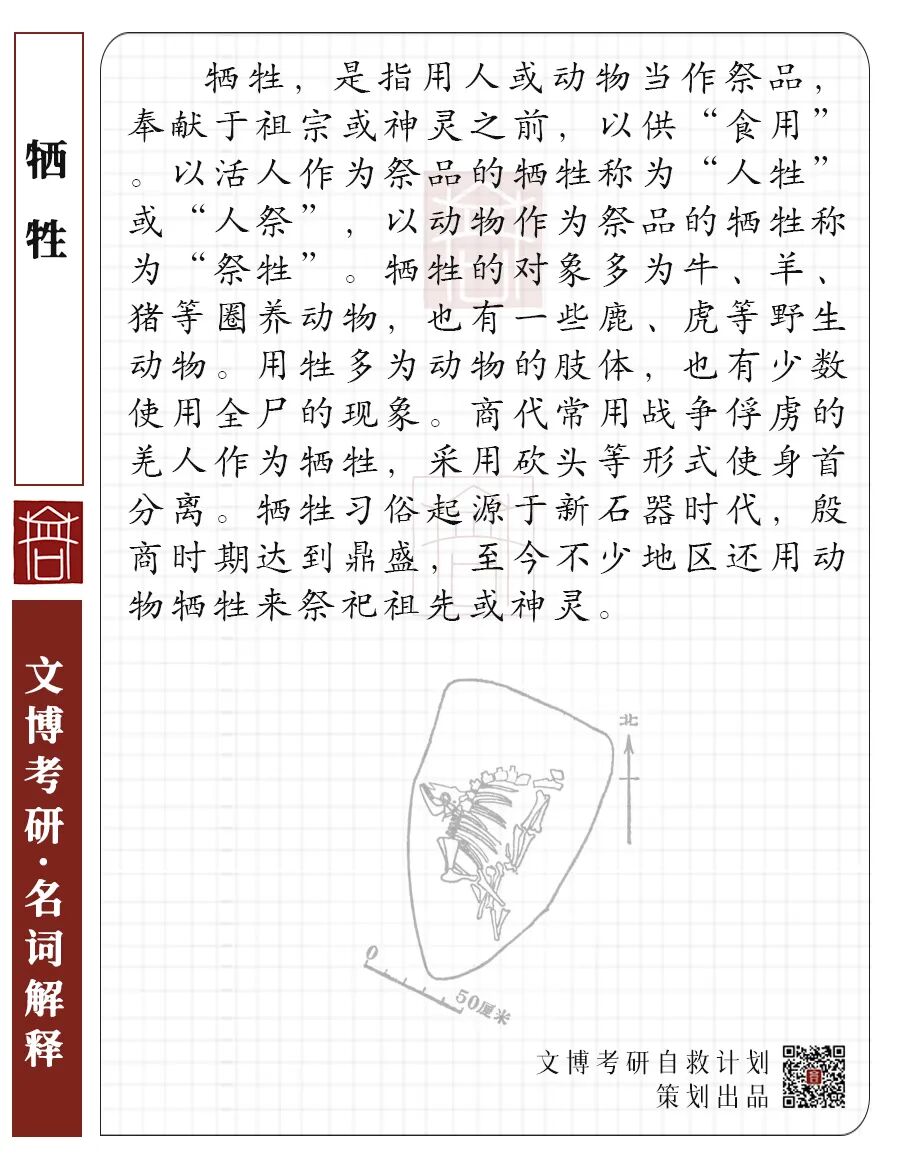 牺牲
文博考研·名词解释
牺牲，是指用人或动物当作祭品，
奉献于祖宗或神灵之前，以供“食用”
。以活人作为祭品的牺牲称为“人牲”
或“人祭”，以动物作为祭品的牺牲称
为“祭牲”。牺牲的对象多为牛、羊、
猪等圈养动物，也有一些鹿、虎等野生
动物。用牲多为动物的肢体，也有少数
使用全尸的现象。商代常用战争俘虏的
羌人作为牺牲，采用砍头等形式使身首
分离。牺牲习俗起源于新石器时代，殷
商时期达到鼎盛，至今不少地区还用动
物牺牲来祭祀祖先或神灵。
北
0
50厘米
文博考研自救计划
策划出品